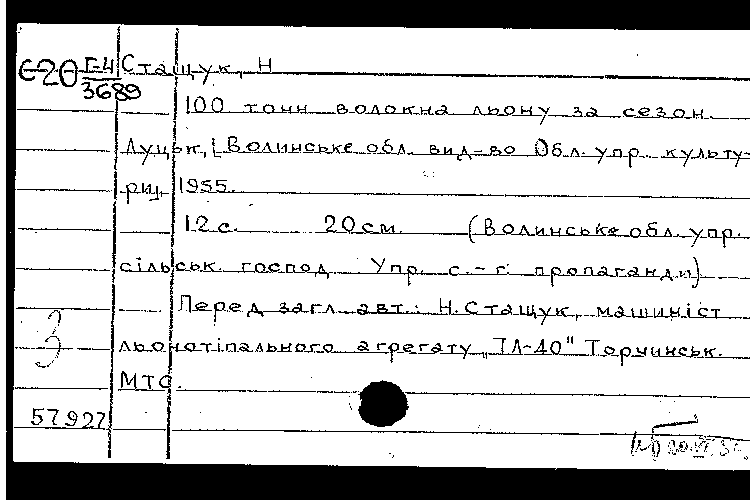 Г-4 Стащук, Н
620 3689
100 тонн волокна льону за сезон.
Луцьк, [Волинське обл. вид-во Обл. упр. культу-
ри], 1955.
12 с. 20 см. (Волинське обл. упр.
сільськ. господ. Упр. с.-г. пропаганди)
Перед загл. авт.: Н. Стащук, машиніст
льонотіпального агрегату „ТЛ-40" Торчинськ.
3
МТС.
57927